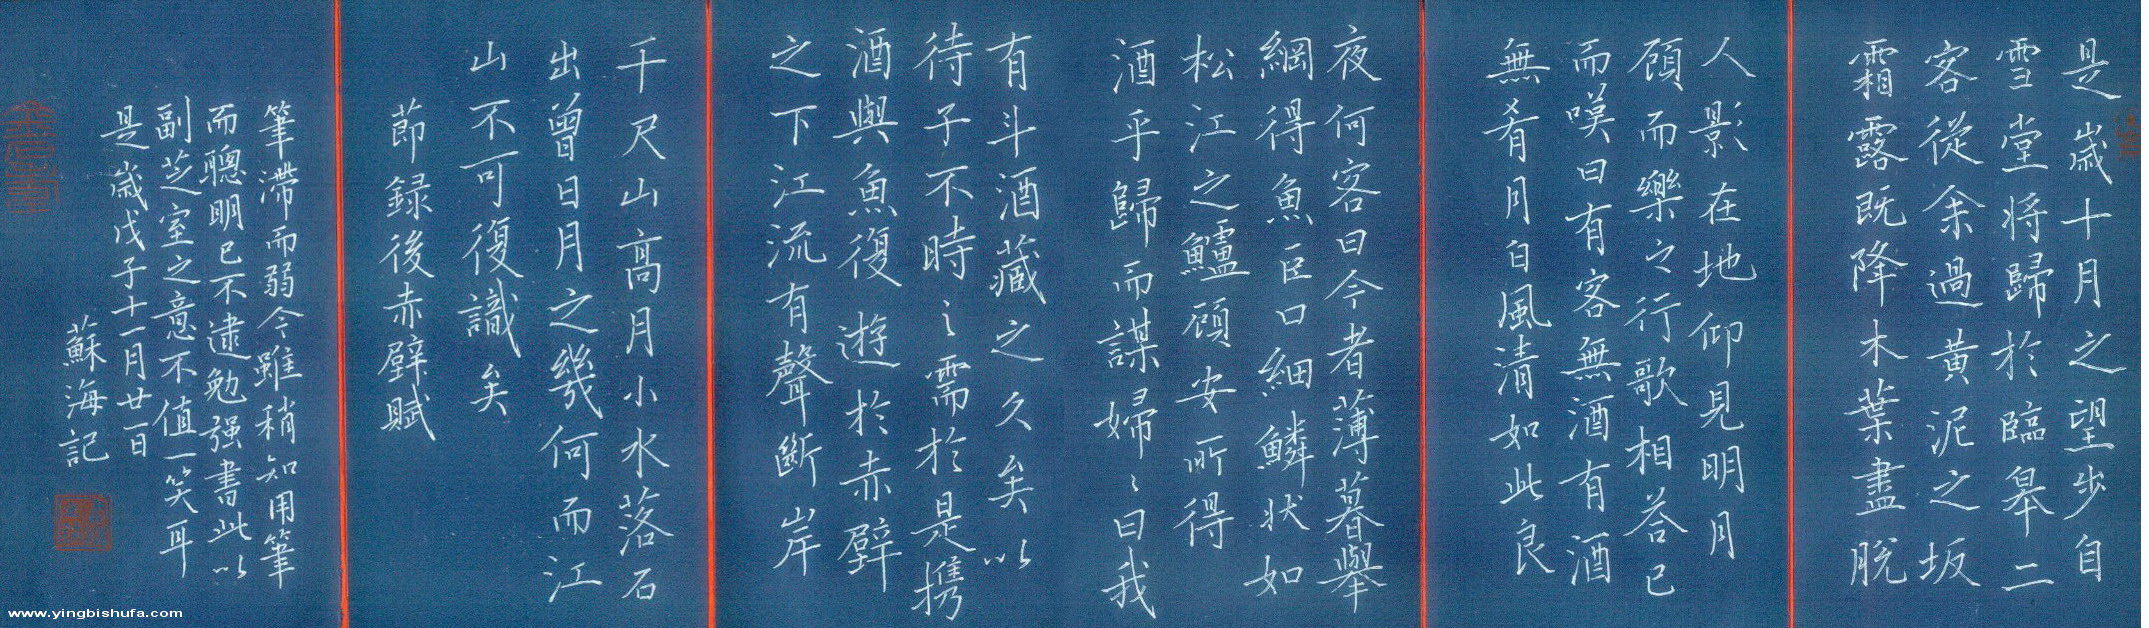 是歲十月之望步自
雪堂將歸於臨皋二
客從余過黃泥之坂
霜露既降木葉盡脫
人影在地仰見明月
顧而樂之行歌相答已
而嘆曰有客無酒有酒
無肴月白風清如此良
夜何客曰今者薄暮舉
網得魚巨口細鱗狀如
松江之鱸顧安所得
酒乎歸而謀婦〻曰我
有斗酒藏之久矣以
待子不時之需於是携
酒與魚復遊於赤壁
之下江流有聲斷岸
千尺山高月小水落石
出曾日月之幾何而江
山不可復識矣
節録後赤壁賦
筆滯而弱今雖稍知用筆
而聰明已不逮勉强書此以
副芝室之意不值一笑耳
是歲戊子十一月廿一日
蘇海記
www.yingbishufa.com